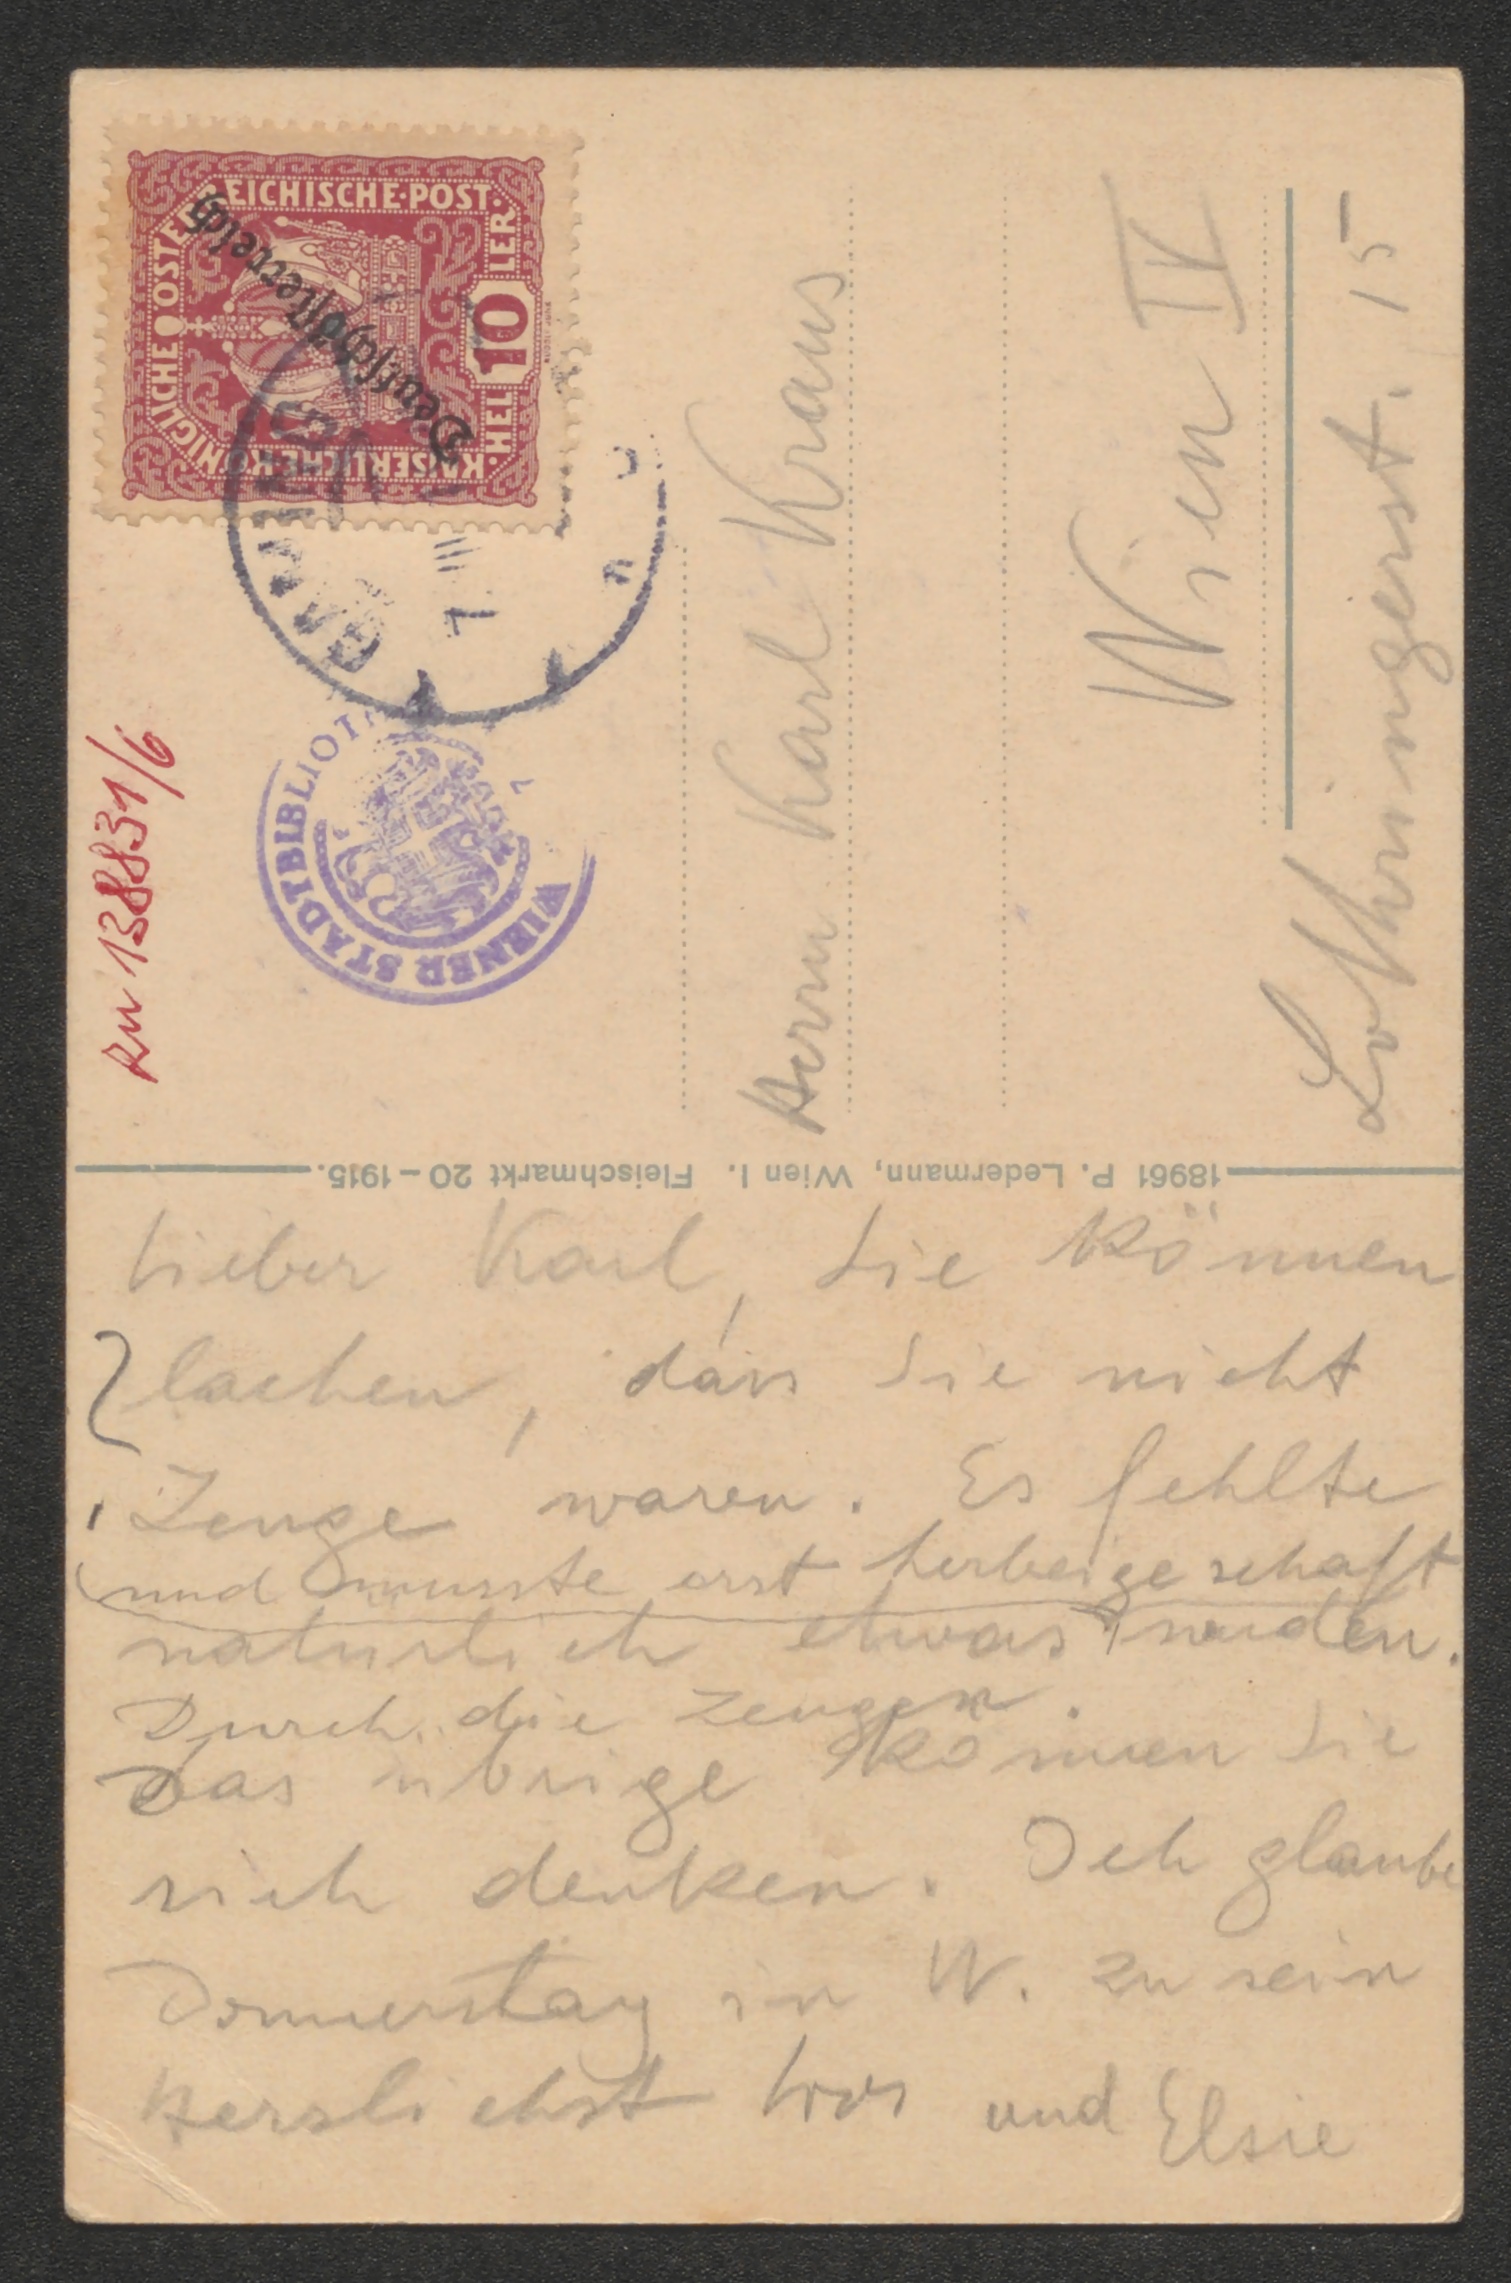 KAISERLICHE KÖNIGLICHE ÖSTERREICHISCHE POST
10 HELLER
Deutschösterreich
7. III
WIENER STADTBIBLIOT
Herrn Karl Kraus
Wien IV
Lothringerst. 15
18961 P. Ledermann, Wien I. Fleischmarkt 20 – 1915.
Lieber Karl, Sie können
lachen, dass Sie nicht
Zeuge waren. Es fehlte
und musste erst herbeigeschafft
natürlich etwas werden.
Durch die Zeugen.
Das übrige können Sie
sich denken. Ich glaube
Donnerstag in W. zu sein
Herzlichst Loos und Elsie